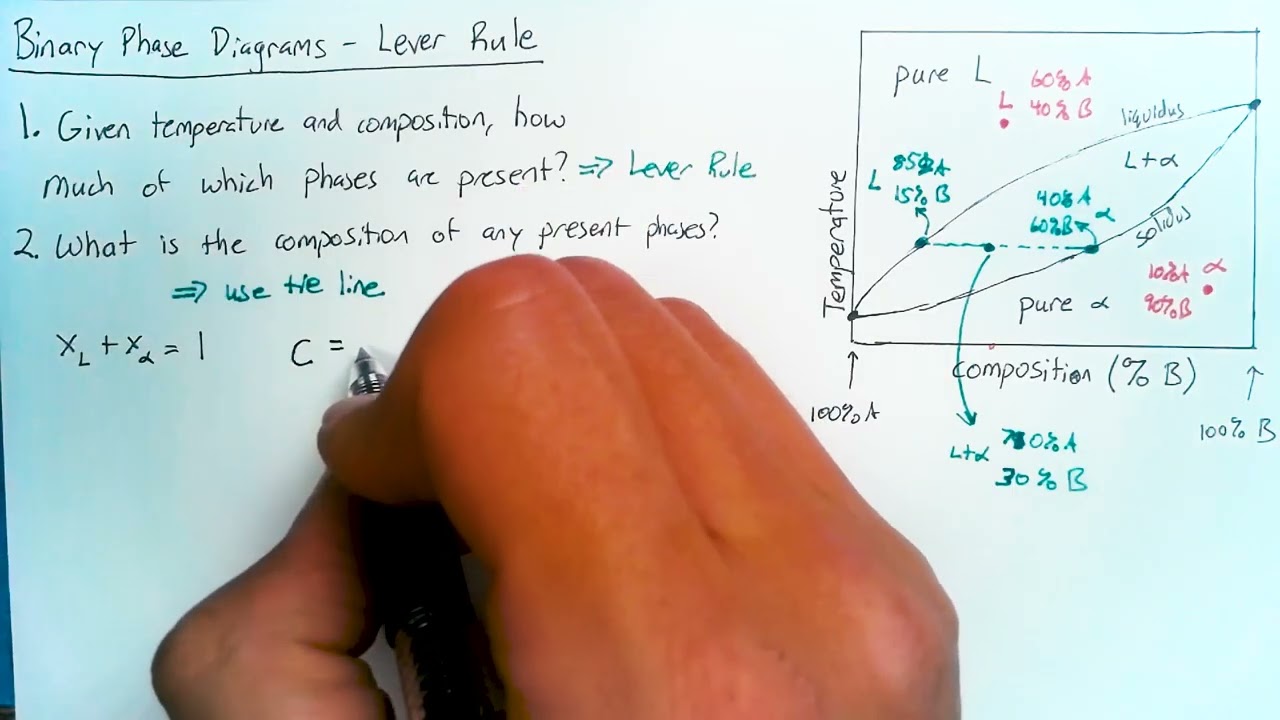 Binary Phase Diagrams - Lever Rule
1. Given temperature and composition, how
much of which phases are present? ⇒ Lever Rule
2. What is the composition of any present phases?
⇒ use tie line
x_L + x_α = 1
C =
pure L
L
60% A
40% B
liquidus
L+α
L
85% A
15% B
40% A
60% B
α
solidus
10% A
90% B
α
pure α
Temperature
composition (% B)
100% A
100% B
L+α
70% A
30% B